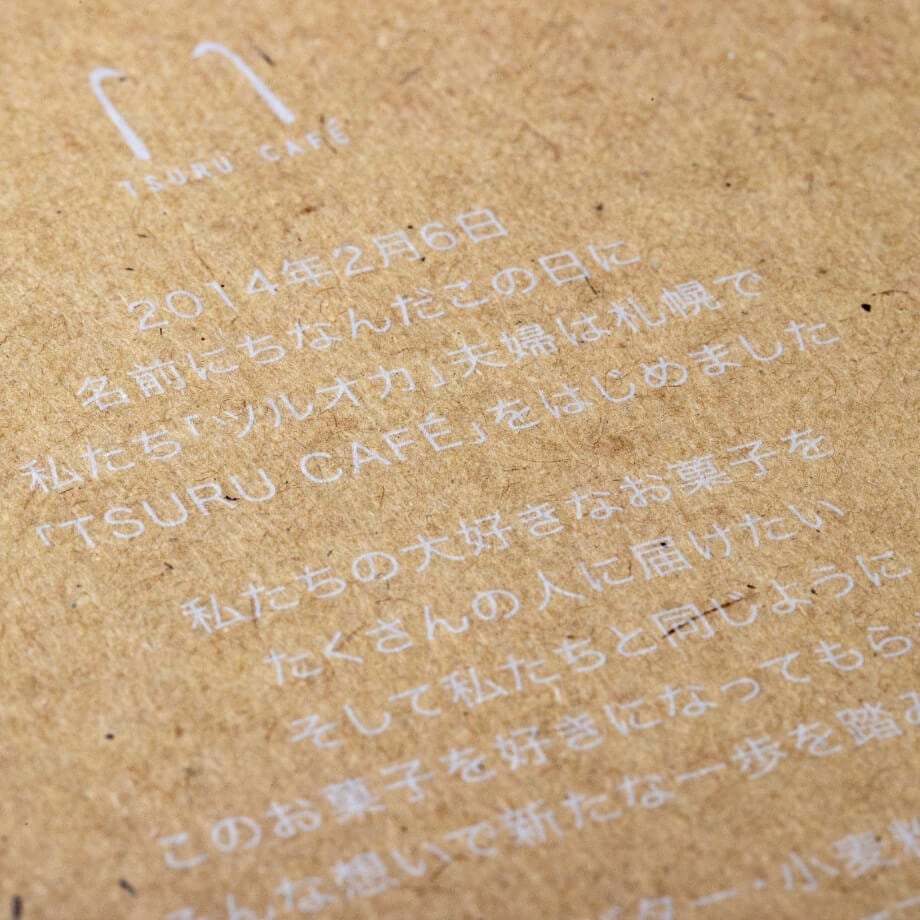 TSURU CAFÉ
2014年2月6日
名前にちなんだこの日に
私たち「ツルオカ」夫婦は札幌で
「TSURU CAFÉ」をはじめました
私たちの大好きなお菓子を
たくさんの人に届けたい
そして私たちと同じように
このお菓子を好きになってもら
こんな想いで新たな一歩を踏み
ター・小麦粉